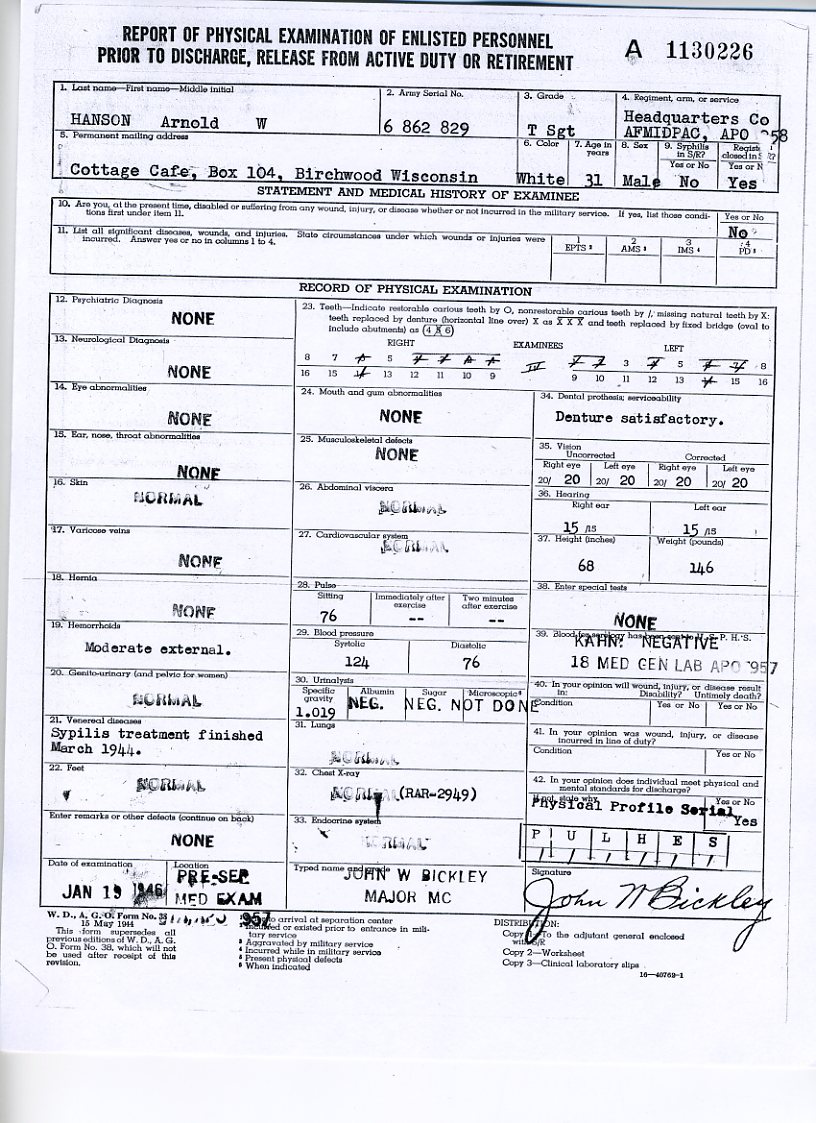 REPORT OF PHYSICAL EXAMINATION OF ENLISTED PERSONNEL
PRIOR TO DISCHARGE, RELEASE FROM ACTIVE DUTY OR RETIREMENT
A 1130226
1. Last name—First name—Middle initial
HANSON Arnold W
2. Army Serial No.
6 862 829
3. Grade
T Sgt
4. Regiment, arm, or service
Headquarters Co
AFMIDPAC, APO 958
5. Permanent mailing address
Cottage Cafe, Box 104, Birchwood Wisconsin
6. Color
White
7. Age in years
31
8. Sex
Male
9. Syphilis in S/R?
Yes or No
No
closed in S/R?
Yes or N
Yes
STATEMENT AND MEDICAL HISTORY OF EXAMINEE
10. Are you, at the present time, disabled or suffering from any wound, injury, or disease whether or not incurred in the military service. If yes, list those condi-
tions first under item 11.
Yes or No
No
11. List all significant diseases, wounds, and injuries. State circumstances under which wounds or injuries were
incurred. Answer yes or no in columns 1 to 4.
1 EPTS
2 AMS
3 IMS
4 PD
RECORD OF PHYSICAL EXAMINATION
12. Psychiatric Diagnosis
NONE
13. Neurological Diagnosis
NONE
14. Eye abnormalities
NONE
15. Ear, nose, throat abnormalities
NONE
16. Skin
NORMAL
17. Varicose veins
NONE
18. Hernia
NONE
19. Hemorrhoids
Moderate external.
20. Genito-urinary (and pelvic for women)
NORMAL
21. Venereal diseases
Sypilis treatment finished
March 1944.
22. Feet
NORMAL
Enter remarks or other defects (continue on back)
NONE
Date of examination
JAN 19 1946
Location
PRE-SEP
MED EXAM
23. Teeth—Indicate restorable carious teeth by O, nonrestorable carious teeth by /, missing natural teeth by X:
teeth replaced by denture (horizontal line over) X as X X X and teeth replaced by fixed bridge (oval to
include abutments) as (4 X 6)
RIGHT EXAMINEES LEFT
8 7 6 5 4 3 2 1 1 2 3 4 5 6 7 8
16 15 14 13 12 11 10 9 9 10 11 12 13 14 15 16
24. Mouth and gum abnormalities
NONE
25. Musculoskeletal defects
NONE
26. Abdominal viscera
NORMAL
27. Cardiovascular system
NORMAL
28. Pulse
Sitting
76
Immediately after exercise
--
Two minutes after exercise
--
29. Blood pressure
Systolic
124
Diastolic
76
30. Urinalysis
Specific gravity
1.019
Albumin
NEG.
Sugar
NEG.
Microscopic
NOT DONE
31. Lungs
NORMAL
32. Chest X-ray
NORMAL (RAR-2949)
33. Endocrine system
NORMAL
Typed name and
JOHN W BICKLEY
MAJOR MC
34. Dental prothesis; serviceability
Denture satisfactory.
35. Vision
Uncorrected Corrected
Right eye Left eye Right eye Left eye
20/ 20 20/ 20 20/ 20 20/ 20
36. Hearing
Right ear Left ear
15 /15 15 /15
37. Height (inches)
68
Weight (pounds)
146
38. Enter special tests
NONE
39. Blood for serology has been sent to U. S. P. H. S.
KAHN: NEGATIVE
18 MED GEN LAB APO 957
40. In your opinion will wound, injury, or disease result
in: Disability? Untimely death?
Condition Yes or No Yes or No
41. In your opinion was wound, injury, or disease
incurred in line of duty?
Condition Yes or No
42. In your opinion does individual meet physical and
mental standards for discharge?
If not, state why
Yes or No
Physical Profile Serial
Yes
P U L H E S
1 1 1 1 1 1
Signature
John W Bickley
W. D., A. G. O. Form No. 38
15 May 1944
This form supersedes all
previous editions of W. D., A. G.
O. Form No. 38, which will not
be used after receipt of this
revision.
957
to arrival at separation center
Incurred or existed prior to entrance in mili-
tary service
3 Aggravated by military service
4 Incurred while in military service
5 Present physical defects
6 When indicated
DISTRIBUTION:
Copy 1—To the adjutant general enclosed
with S/R
Copy 2—Worksheet
Copy 3—Clinical laboratory slips
16—40769-1